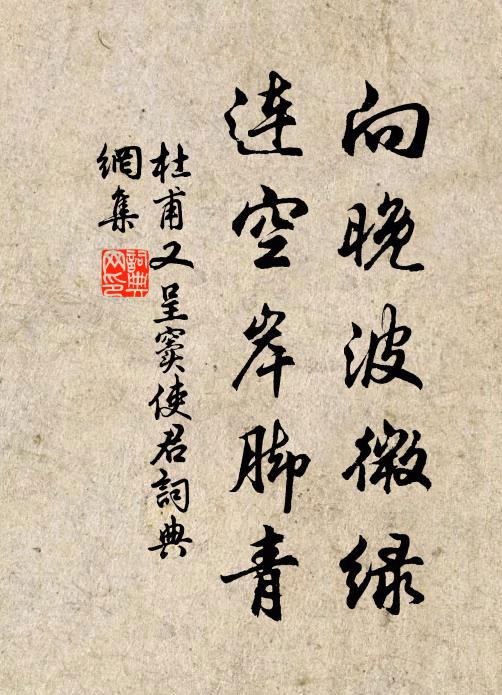 向晚波微绿
连空岸脚青
杜甫又呈窦使君詞典
網集
詞典
网印